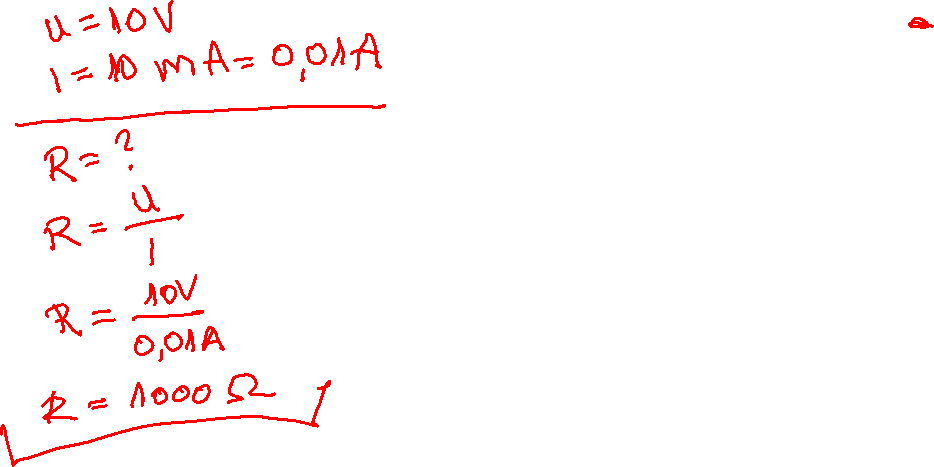 u = 10V
I = 10 mA = 0,01A
R = ?
R = u / I
R = 10V / 0,01A
R = 1000 Ω